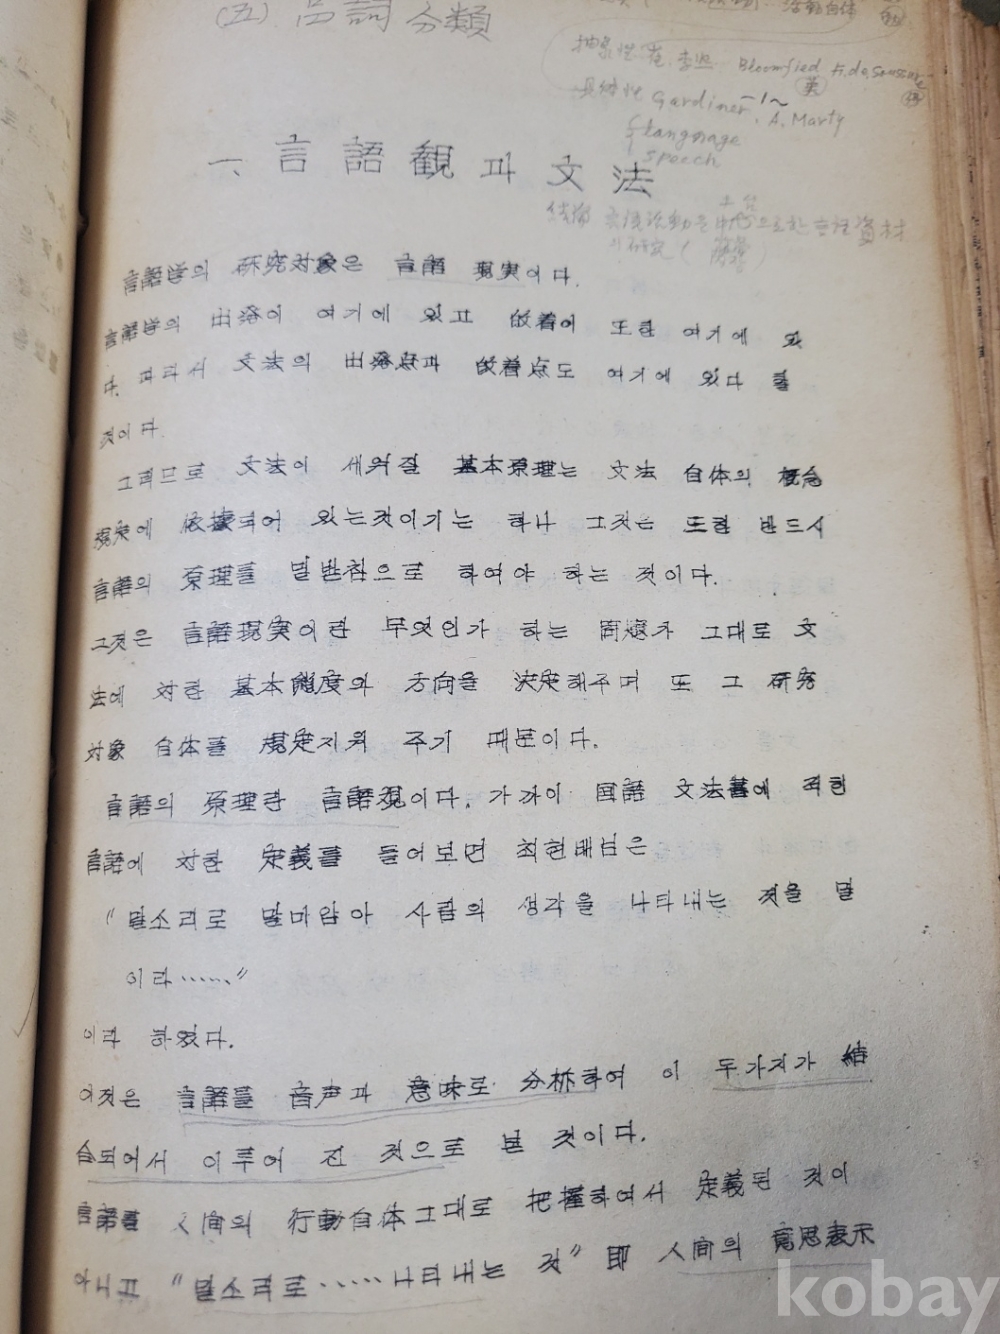 (五) 品詞 分類
抽象性 Bloomfield F. de Saussure
Gardiner, A. Marty
language
speech
一、言語観과 文法
言語学의 研究対象은 言語 現実이다.
言語学의 出発이 여기에 있고 帰着이 또한 여기에 있
다. 따라서 文法의 出発点과 帰着点도 여기에 있다 할
것이다.
그러므로 文法이 세워질 基本原理는 文法 自体의 概念
規定에 依據되어 있는것이기는 하나 그것은 또한 반드시
言語의 原理를 밑받침으로 하여야 하는 것이다.
그것은 言語現実이란 무엇인가 하는 問題가 그대로 文
法에 対한 基本態度와 方向을 決定해주며 또 그 研究
対象 自体를 規定지워 주기 때문이다.
言語의 原理란 言語観이다. 가까이 国語 文法書에 적힌
言語에 対한 定義를 들어보면 최현배님은
"말소리로 말미암아 사람의 생각을 나타내는 것을 말
이라……"
이라 하였다.
이것은 言語를 音声과 意味로 分析하여 이 두가지가 結
合되어서 이루어 진 것으로 본 것이다.
言語를 人間의 行動自体그대로 把握하여서 定義된 것이
아니고 "말소리로……나타내는 것" 即 人間의 意思表示
kobay